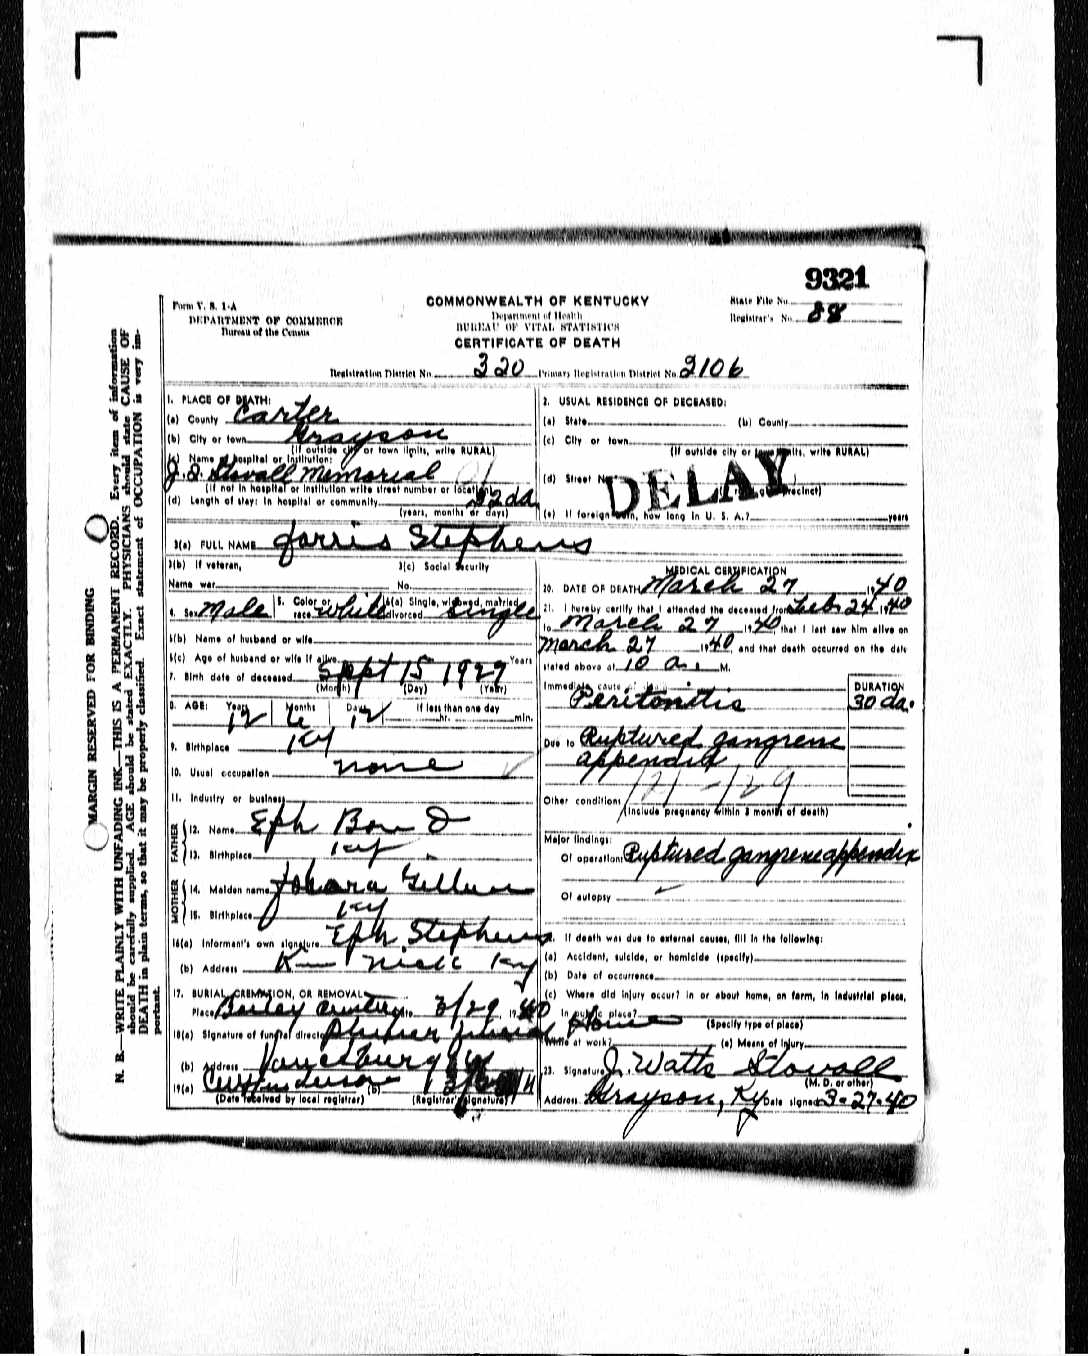 9321
Form V. S. 1-A
DEPARTMENT OF COMMERCE
Bureau of the Census
COMMONWEALTH OF KENTUCKY
Department of Health
BUREAU OF VITAL STATISTICS
CERTIFICATE OF DEATH
State File No.
Registrar's No. 88
Registration District No. 320 Primary Registration District No. 2106
MARGIN RESERVED FOR BINDING
N. B.—WRITE PLAINLY WITH UNFADING INK—THIS IS A PERMANENT RECORD. Every item of information
should be carefully supplied. AGE should be stated EXACTLY. PHYSICIANS should state CAUSE OF
DEATH in plain terms, so that it may be properly classified. Exact statement of OCCUPATION is very im-
portant.
1. PLACE OF DEATH:
(a) County Carter
(b) City or town Grayson
(If outside city or town limits, write RURAL)
(c) Name of hospital or institution:
J. Q. Stovall Memorial
(If not in hospital or institution write street number or location)
(d) Length of stay: In hospital or community 32 da
(years, months or days)
2. USUAL RESIDENCE OF DECEASED:
(a) State (b) County
(c) City or town
(If outside city or town limits, write RURAL)
(d) Street No.
DELAY
(e) If foreign born, how long in U. S. A.? years
3(a) FULL NAME Jarris Stephens
3(b) If veteran, 3(c) Social Security
Name war No.
4. Sex Male 5. Color or race white 6(a) Single, widowed, married, divorced single
6(b) Name of husband or wife
6(c) Age of husband or wife if alive Years
7. Birth date of deceased Sept 15 1927
(Month) (Day) (Year)
8. AGE: Years Months Days If less than one day
12 6 12 hr. min.
9. Birthplace Ky
10. Usual occupation none
11. Industry or business
FATHER
12. Name Eph
13. Birthplace Ky
MOTHER
14. Maiden name
15. Birthplace Ky
16(a) Informant's own signature Eph Stephens
(b) Address Ky
17. BURIAL, CREMATION, OR REMOVAL
Place 3/29, 1940
18(a) Signature of funeral director
(b) Address Vanceburg Ky
19(a) (b)
(Date received by local registrar) (Registrar's signature)
MEDICAL CERTIFICATION
20. DATE OF DEATH March 27 1940
21. I hereby certify that I attended the deceased from Feb 24 1940
to March 27 1940, that I last saw him alive on
March 27 1940 and that death occurred on the date
stated above at 10 a. M.
Immediate cause of death
Peritonitis
DURATION
30 da.
Due to Ruptured gangrene
appendix
121 - 129
Other conditions
(Include pregnancy within 3 months of death)
Major findings:
Of operation: Ruptured gangrene appendix
Of autopsy
If death was due to external causes, fill in the following:
(a) Accident, suicide, or homicide (specify)
(b) Date of occurrence
(c) Where did injury occur? In or about home, on farm, in industrial place,
in public place?
Home
(Specify type of place)
While at work? (e) Means of Injury
23. Signature J. Watts Stovall
(M. D. or other)
Address Grayson, Ky Date signed 3-27-40